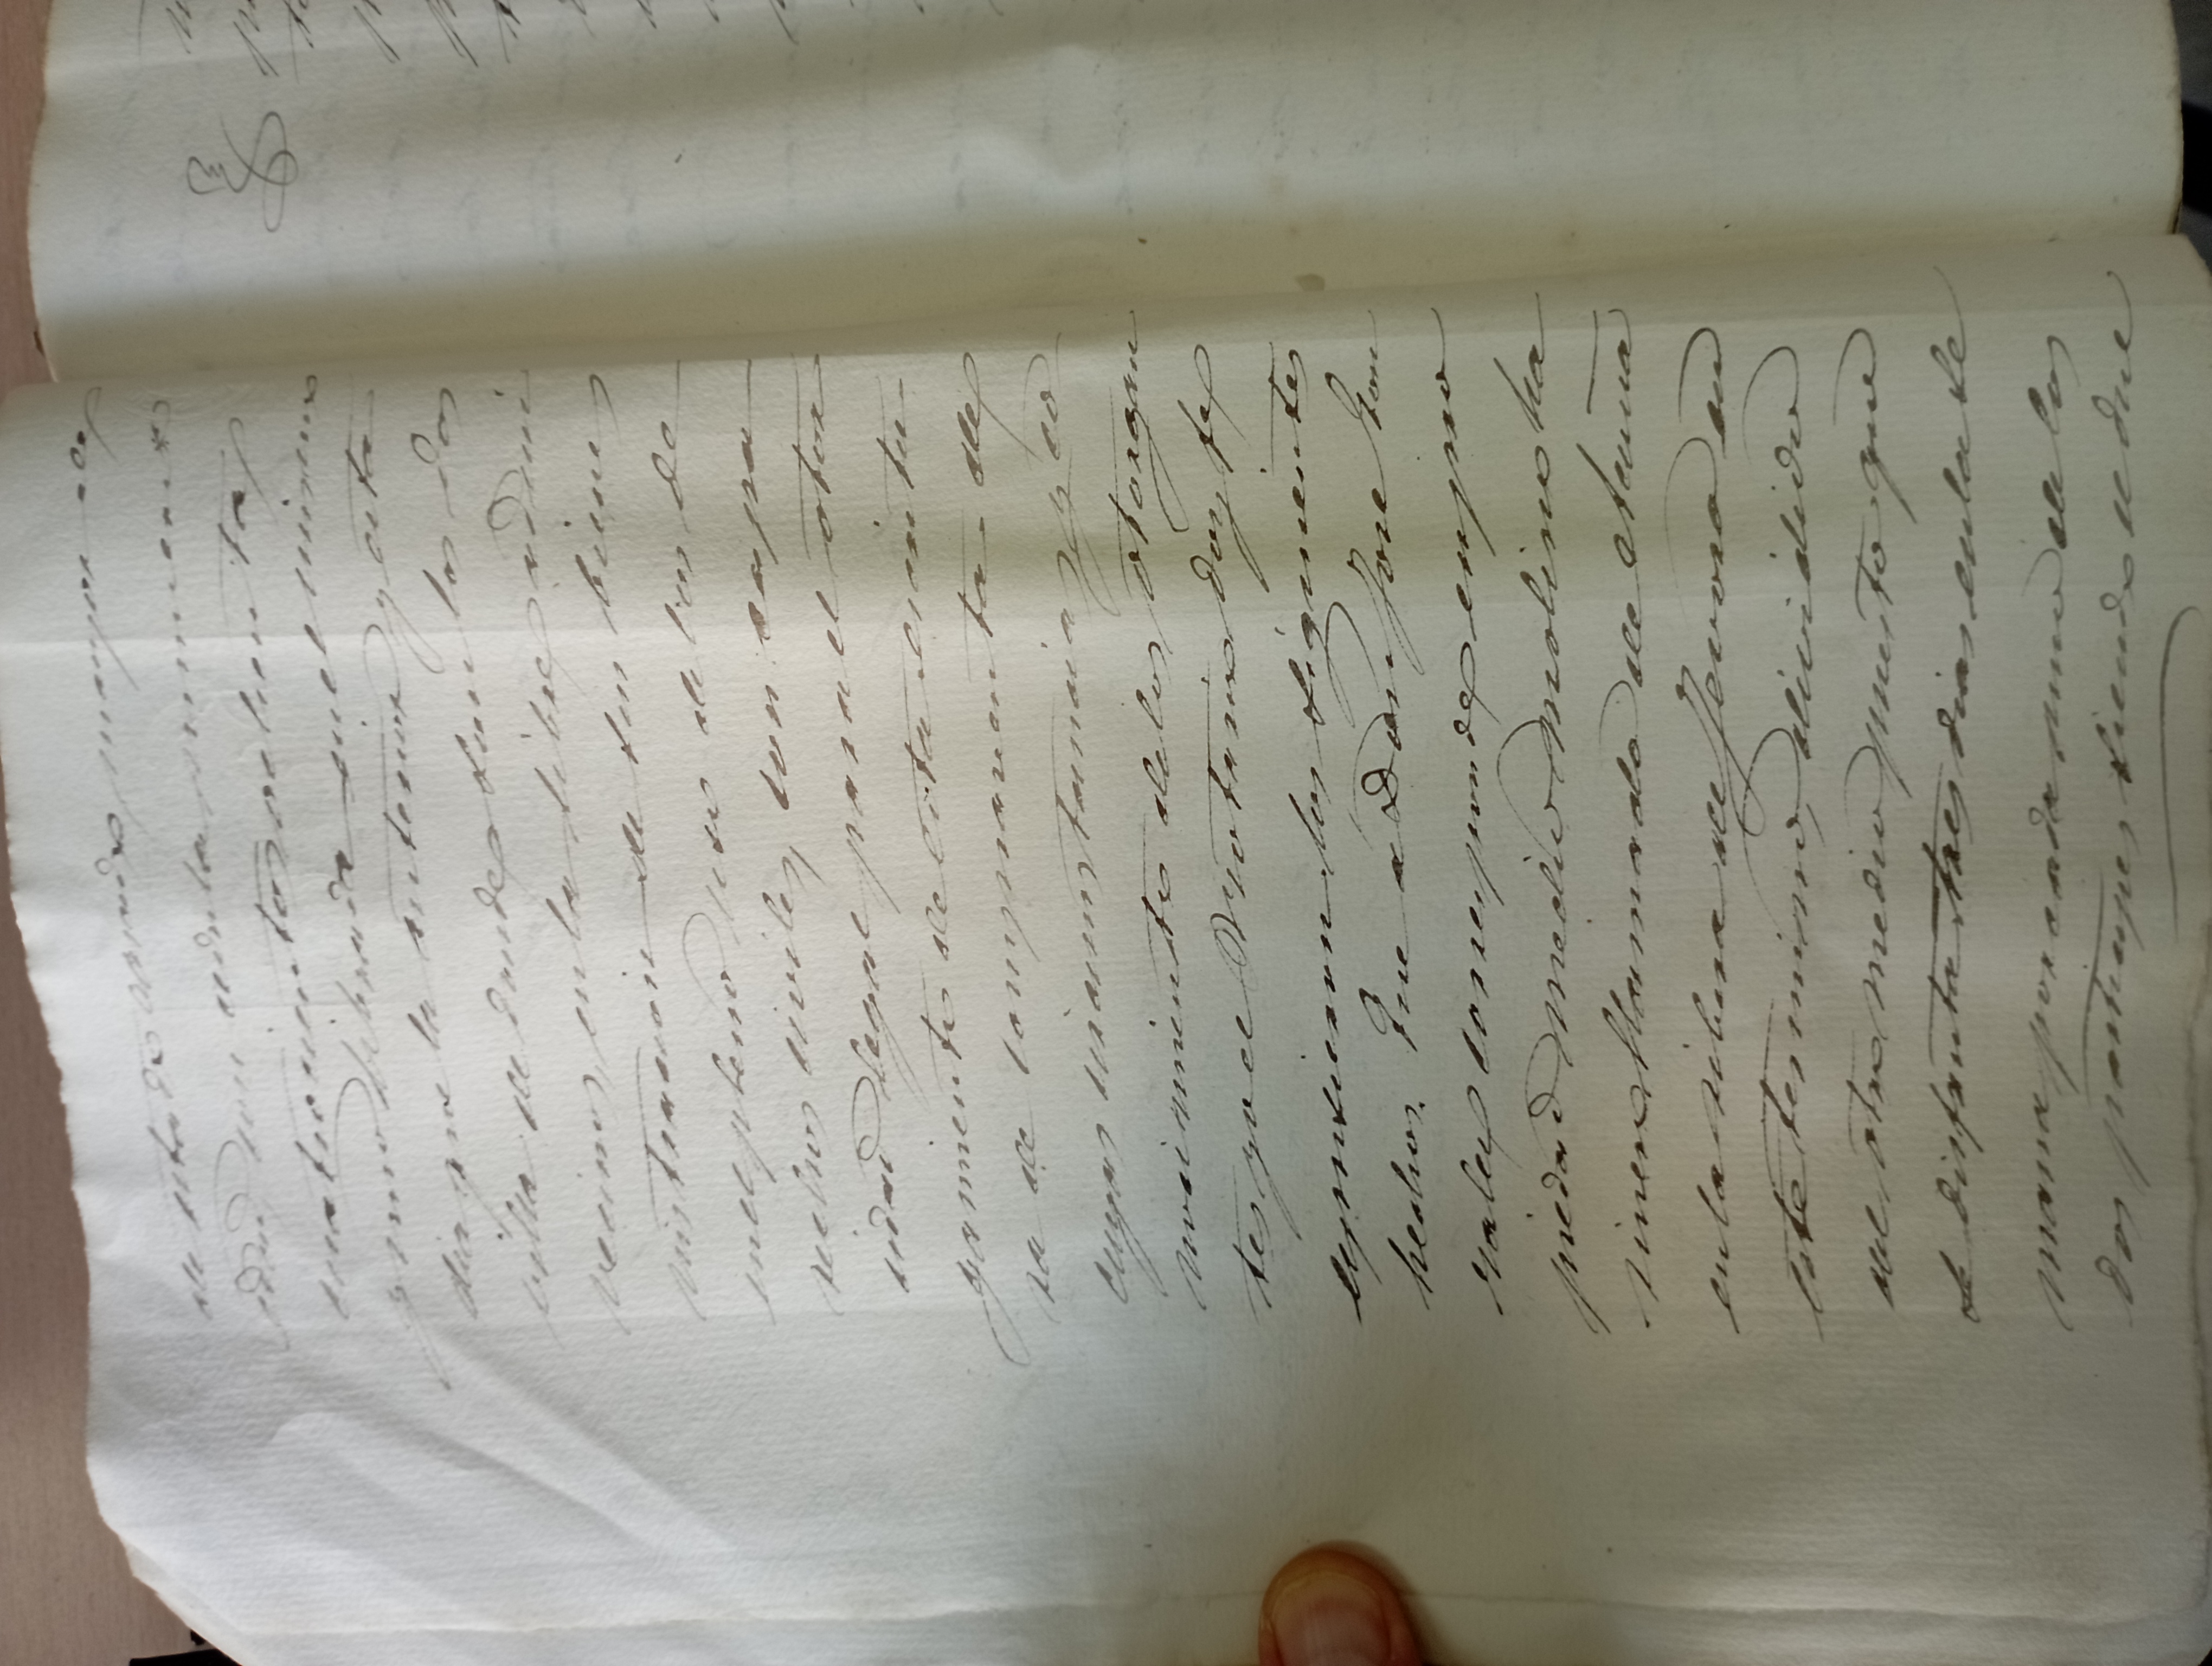 de estado casado, mayor de
edad, con cedula numero
cuatrocientos ochenta
y uno librada en el mismo
dia que la anterior y esta
villa de donde son los dos
vecinos, en la libre admi
nistracion de sus bienes
en el pleno uso de los de
rechos civiles, con capa
cidad legal para el otor
gamiento de esta escritu-
ra de compraventa de
cuyas circunstancias y co
nocimiento de los otorgan
tes yo el Notario doy fe
espusieron los siguientes
hechos. Que a Don Jose Gon
zalez corresponde en pro
piedad medio molino ha
rinero llamado de Acuña
en la ribera de Jevora en
este termino, dividido
del otro medio puesto que
se disfruta tres dias en la se
mana por cada uno de los
dos participes siendo el due